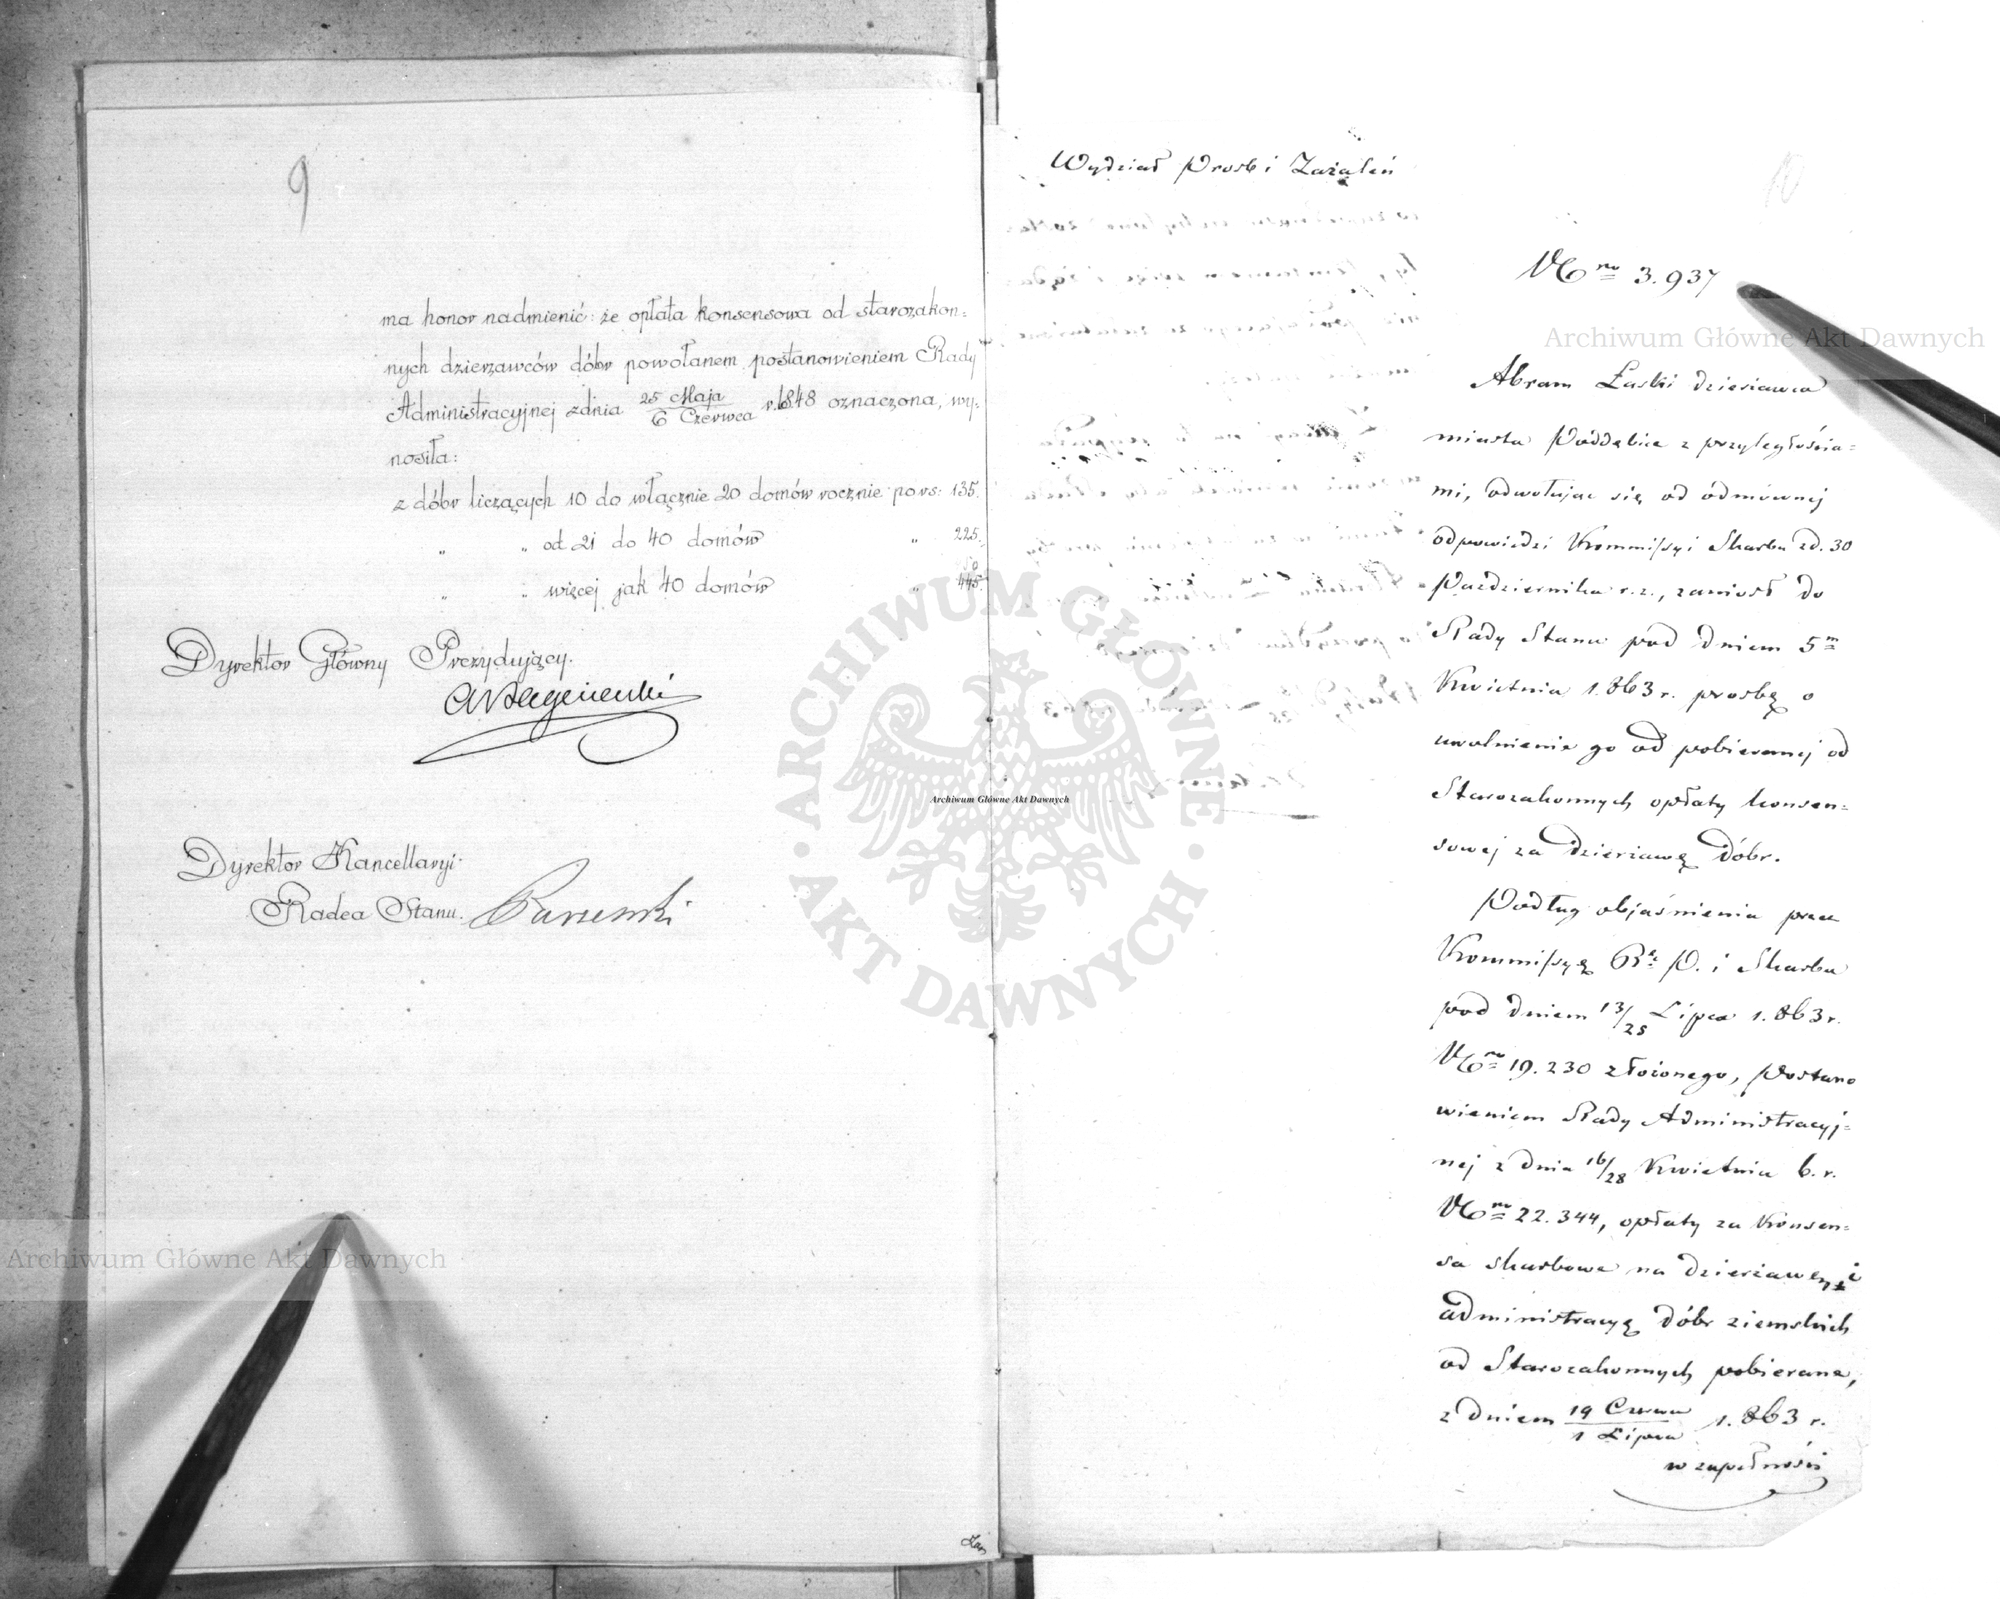 9
ma honor nadmienić: że opłata konsensowa od starozakon=
nych dzierzawców dóbr powołanem postanowieniem Rady
Administracyjnej z dnia 25 Maja / 6 Czerwca r. 1848 oznaczona, wy=
nosiła:
z dóbr liczących 10 do włącznie 20 domów rocznie po rs: 135.
„ „ od 21 do 40 domów „ 225.
„ „ więcej jak 40 domów „ 445.
Dyrektor Główny Prezydujący.
Dyrektor Kancellaryi
Radca Stanu.
Wydział Prosb i Zażaleń
10
Nro 3.937
Abram Łaski dzierżawca
miasta Poddębice z przyległościa=
mi, odwołując się od odmównej
odpowiedzi Kommissyi Skarbu z d. 30
Października r. z., zaniosł do
Rady Stanu pod dniem 5m
Kwietnia 1.863 r. prosbę o
uwolnienie go od pobieranej od
Starozakonnych opłaty konsen=
sowej za dzierżawę dóbr.
Podług objaśnienia przez
Kommissyę P. i Skarbu
pod dniem 13/25 Lipca 1.863 r.
Nro 19.230 złożonego, Postano
wieniem Rady Administracyj=
nej z dnia 16/28 Kwietnia b. r.
Nro 22.344, opłaty za Konsen=
sa skarbowe na dzierżawę i
administracyę dóbr ziemskich
od Starozakonnych pobierane,
z dniem 19 Czerwca / 1 Lipca 1.863 r.
w zupełności
Archiwum Główne Akt Dawnych
Archiwum Główne Akt Dawnych
Archiwum Główne Akt Dawnych
ARCHIWUM GŁÓWNE AKT DAWNYCH